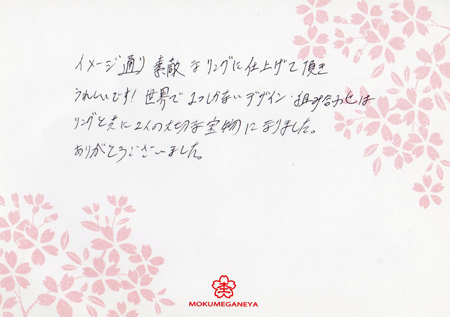 イメージ通り素敵なリングに仕上げて頂き
うれしいです！世界で1つしかないデザイン・組み合わせは
リングと共に2人の大切な宝物になりました。
ありがとうございました。
MOKUMEGANEYA